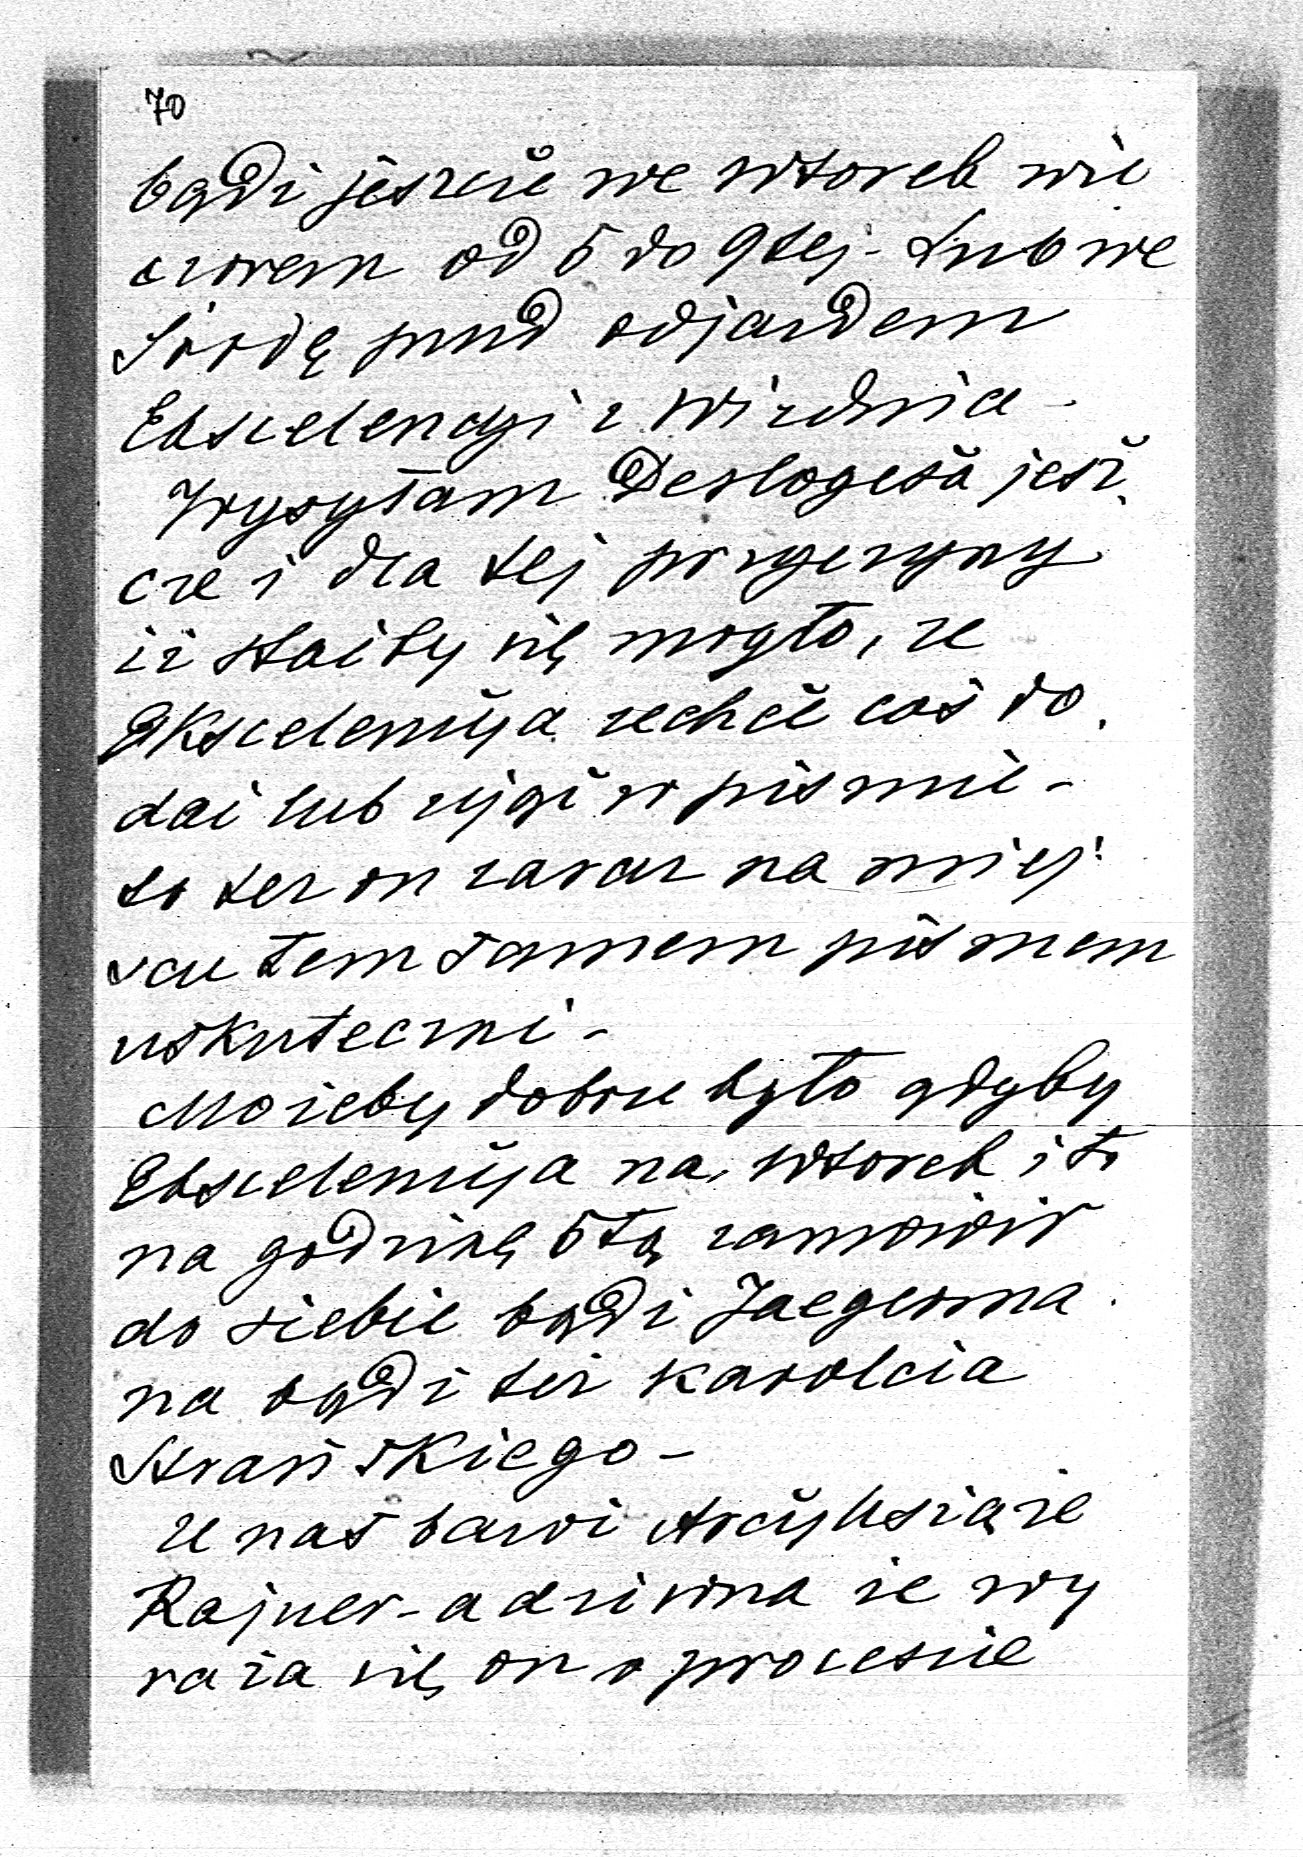 70
bądź jeszcze we wtorek wie
czorem od 5 do 9tej - Lub we
Środę przed odjazdem
Ekscelencyi z Wiednia -
Wysyłam Deslogesa jesz
cze i dla tej przyczyny
iż stać by się mogło, że
Ekscelencyja zechce coś do
dać lub ująć w piśmie -
to też on zaraz na miej
scu tem samem pismem
uskuteczni -
Możeby dobrze było gdyby
Ekscelencyja na wtorek i to
na godzinę 5tą zamówił
do siebie bądź Jaegerma
na bądź też Karolcia
Strańskiego -
U nas bawi Arcyksiąże
Rajner - a dziwna że wy
raża się on o procesie